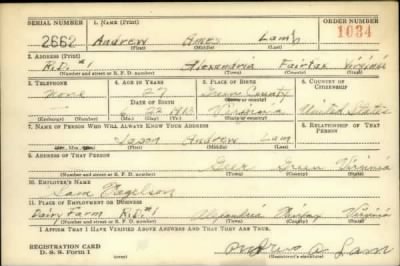 SERIAL NUMBER 1. NAME (Print) ORDER NUMBER
2662 Andrew Amos Lamb 1034
(First) (Middle) (Last)
2. ADDRESS (Print)
R.D. #1 Alexandria Fairfax Virginia
(Number and street or R. F. D. number) (Town) (County) (State)
3. TELEPHONE 4. AGE IN YEARS 5. PLACE OF BIRTH 6. COUNTRY OF CITIZENSHIP
None 27 Green County
DATE OF BIRTH
— 6 22 1913 Virginia United States
(Exchange) (Number) (Mo.) (Day) (Yr.) (State or country)
7. NAME OF PERSON WHO WILL ALWAYS KNOW YOUR ADDRESS 8. RELATIONSHIP OF THAT PERSON
Andrew Lam
(Mr., Mrs., Miss) (First) (Middle) (Last)
9. ADDRESS OF THAT PERSON
Green Virginia
(Number and street or R. F. D. number) (Town) (County) (State)
10. EMPLOYER'S NAME
Sam
11. PLACE OF EMPLOYMENT OR BUSINESS
Dairy Farm R.D. #1 Alexandria Fairfax Virginia
(Number and street or R. F. D. number) (Town) (County) (State)
I AFFIRM THAT I HAVE VERIFIED ABOVE ANSWERS AND THAT THEY ARE TRUE.
REGISTRATION CARD
D. S. S. Form 1 Lam
(over) (Registrant's signature)